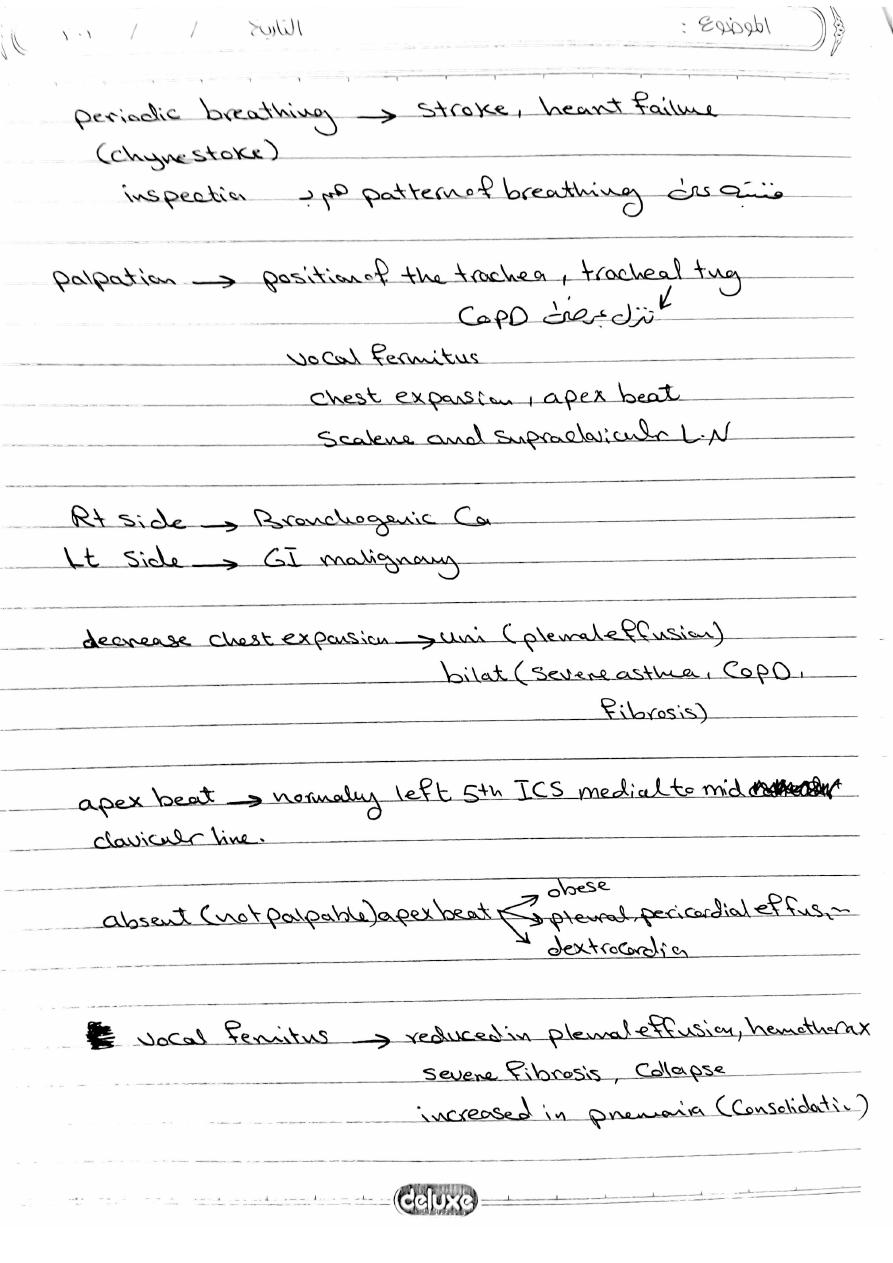 الموضوع : التاريخ / / ١٠١
periodic breathing → stroke, heart failure
(chynestoke)
inspection pattern of breathing
palpation → position of the trachea, tracheal tug
تنزل COPD
vocal fermitus
chest expansion, apex beat
Scalene and supraclavicular L.N
Rt side → Bronchogenic Ca
Lt side → GI malignancy
decrease chest expansion → uni (pleural effusion)
bilat (severe asthma, COPD,
fibrosis)
apex beat → normaly left 5th ICS medial to mid
clavicular line.
absent (not palpable) apex beat → obese
→ pleural, pericardial effusion
→ dextrocardia
vocal fermitus → reduced in pleural effusion, hemothorax
severe fibrosis, Collapse
increased in pnemonia (Consolidation)
deluxe